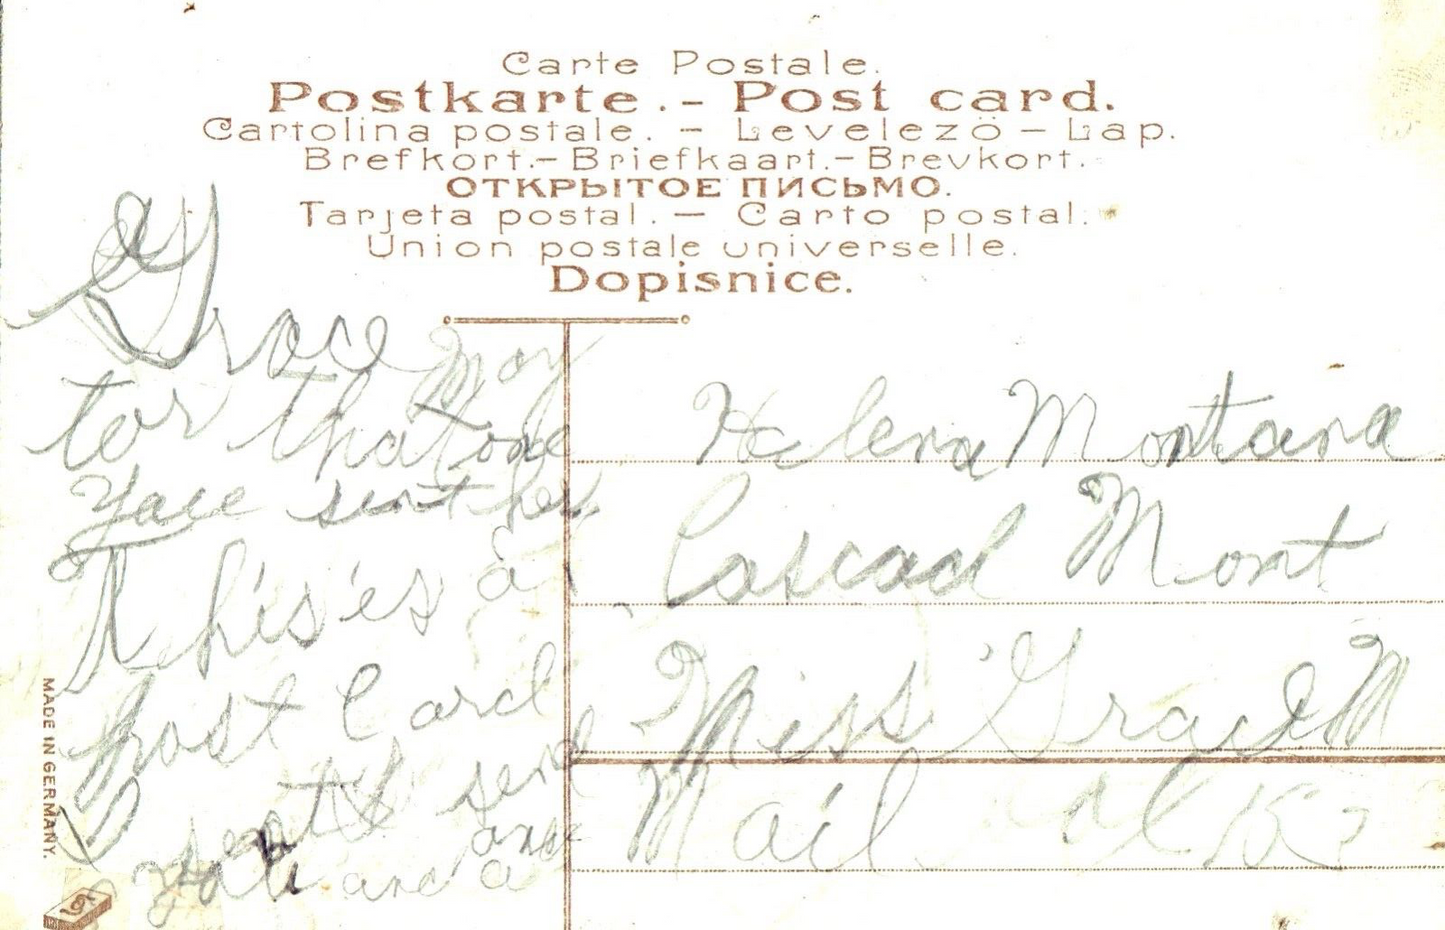 Carte Postale.
Postkarte.- Post card.
Cartolina postale. - Levelezö-Lap.
Brefkort.-Briefkaart.-Brevkort.
ОТКРЫТОЕ ПИСЬМО.
Tarjeta postal. - Carto postal.
Union postale universelle.
Dopisnice.
Grace May
tor that one
sent her
This is a
post Card
send
you and a
Helena Montana
Cascad Mont
Miss Grace M
Mail
MADE IN GERMANY.